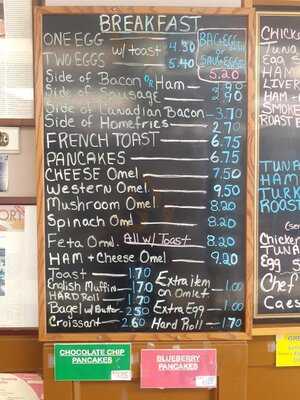 BREAKFAST
ONE EGG w/ toast 4.90
TWO EGGS 5.40
BAG+EGG
OR
SAUS+EGGS
5.20
Side of Bacon OR Ham 3.90
Side of Sausage 2.90
Side of Canadian Bacon 3.70
Side of Homefries 2.70
FRENCH TOAST 6.75
PANCAKES 6.75
CHEESE Omel. 7.50
Western Omel. 9.50
Mushroom Omel 8.20
Spinach Omel 8.20
All w/ Toast
Feta Omel. 8.20
HAM + Cheese Omel 9.20
Toast 1.70
English Muffin 1.70
HARD Roll 1.70
Bagel w/ Butter 2.50
Croissant 2.60
Extra item
on Omlet 1.00
Extra Egg 1.00
Hard Roll 1.70
CHOCOLATE CHIP
PANCAKES
BLUEBERRY
PANCAKES
Egg
HAM
ROAST
TUNA
HAM
Egg
Chef